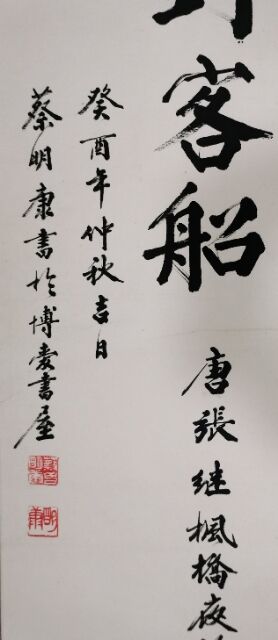 客船
唐張继楓橋夜
癸酉年仲秋吉日
蔡明康書於博爱書屋